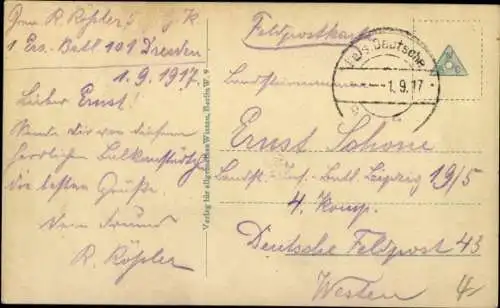 Grm. R. Rößler, G. K.
1. Ers. Batl 101 Dresden
1.9.1917.
Lieber Ernst!
Sende Dir von diesem
herrlichen
die besten Grüße.
Dein Freund
R. Rößler
Verlag für allgemeines Wissen, Berlin W. 9.
Feldpostkarte
Deutsche
-1.9.17
Landsturmmann
Ernst Schöne
Landst. Inf. Batl. Leipzig 19/5
4. Komp.
Deutsche Feldpost 43
Westen